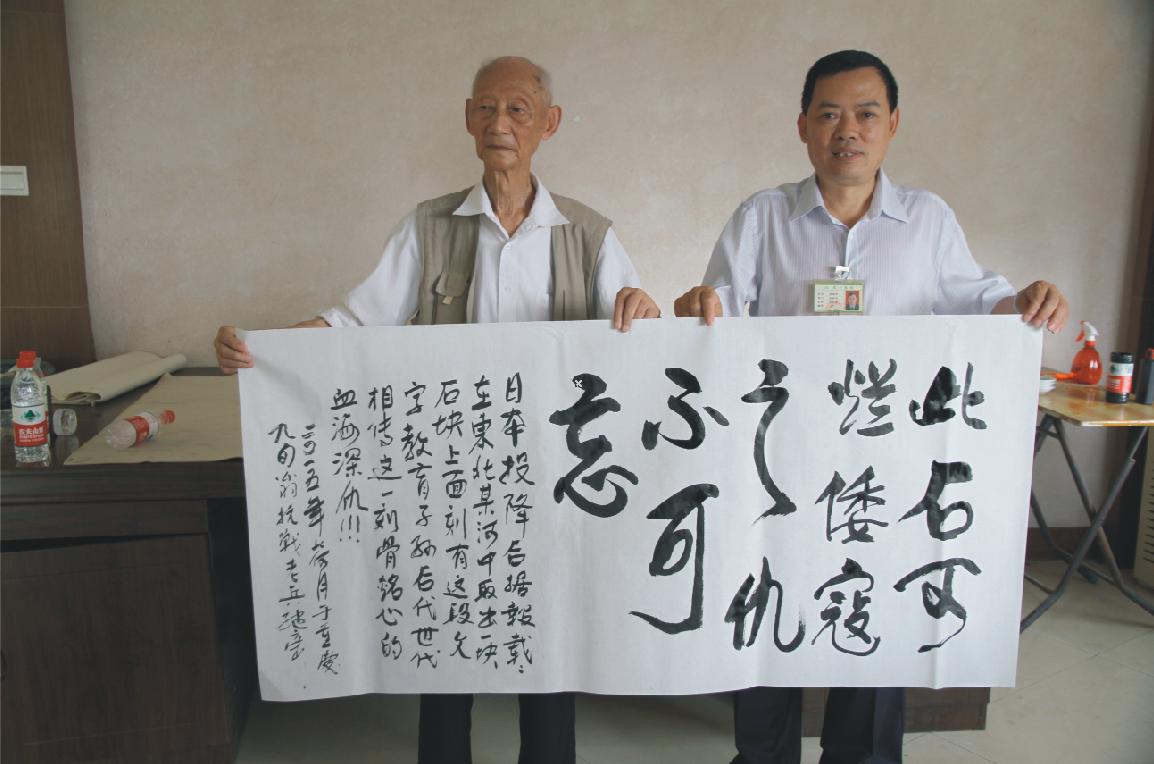 此石可
烂倭寇
之仇
不可
忘
日本投降后据報载:
在東北某河中取出一块
石块上面刻有这段文
字教育子孙后代世代
相传这一刻骨铭心的
血海深仇!!!
二〇一五年荷月于重慶
九旬翁抗战老兵
农夫山泉